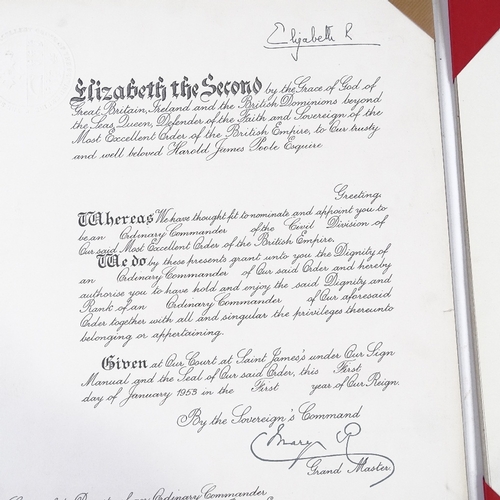 Elizabeth R
Elizabeth the Second by the Grace of God of
Great Britain, Ireland and the British Dominions beyond
the Seas, Queen, Defender of the Faith and Sovereign of the
Most Excellent Order of the British Empire, to Our trusty
and well beloved Harold James Poole Esquire
Greeting,
Whereas We have thought fit to nominate and appoint you to
be an Ordinary Commander of the Civil Division of
Our said Most Excellent Order of the British Empire,
We do by these presents grant unto you the Dignity of
an Ordinary Commander of Our said Order and hereby
authorise you to have hold and enjoy the said Dignity and
Rank of an Ordinary Commander of Our aforesaid
Order together with all and singular the privileges thereunto
belonging or appertaining.
Given at Our Court at Saint James's under Our Sign
Manual and the Seal of Our said Order, this First
day of January 1953 in the First year of Our Reign.
By the Sovereign's Command
Mary R
Grand Master.
Ordinary Commander